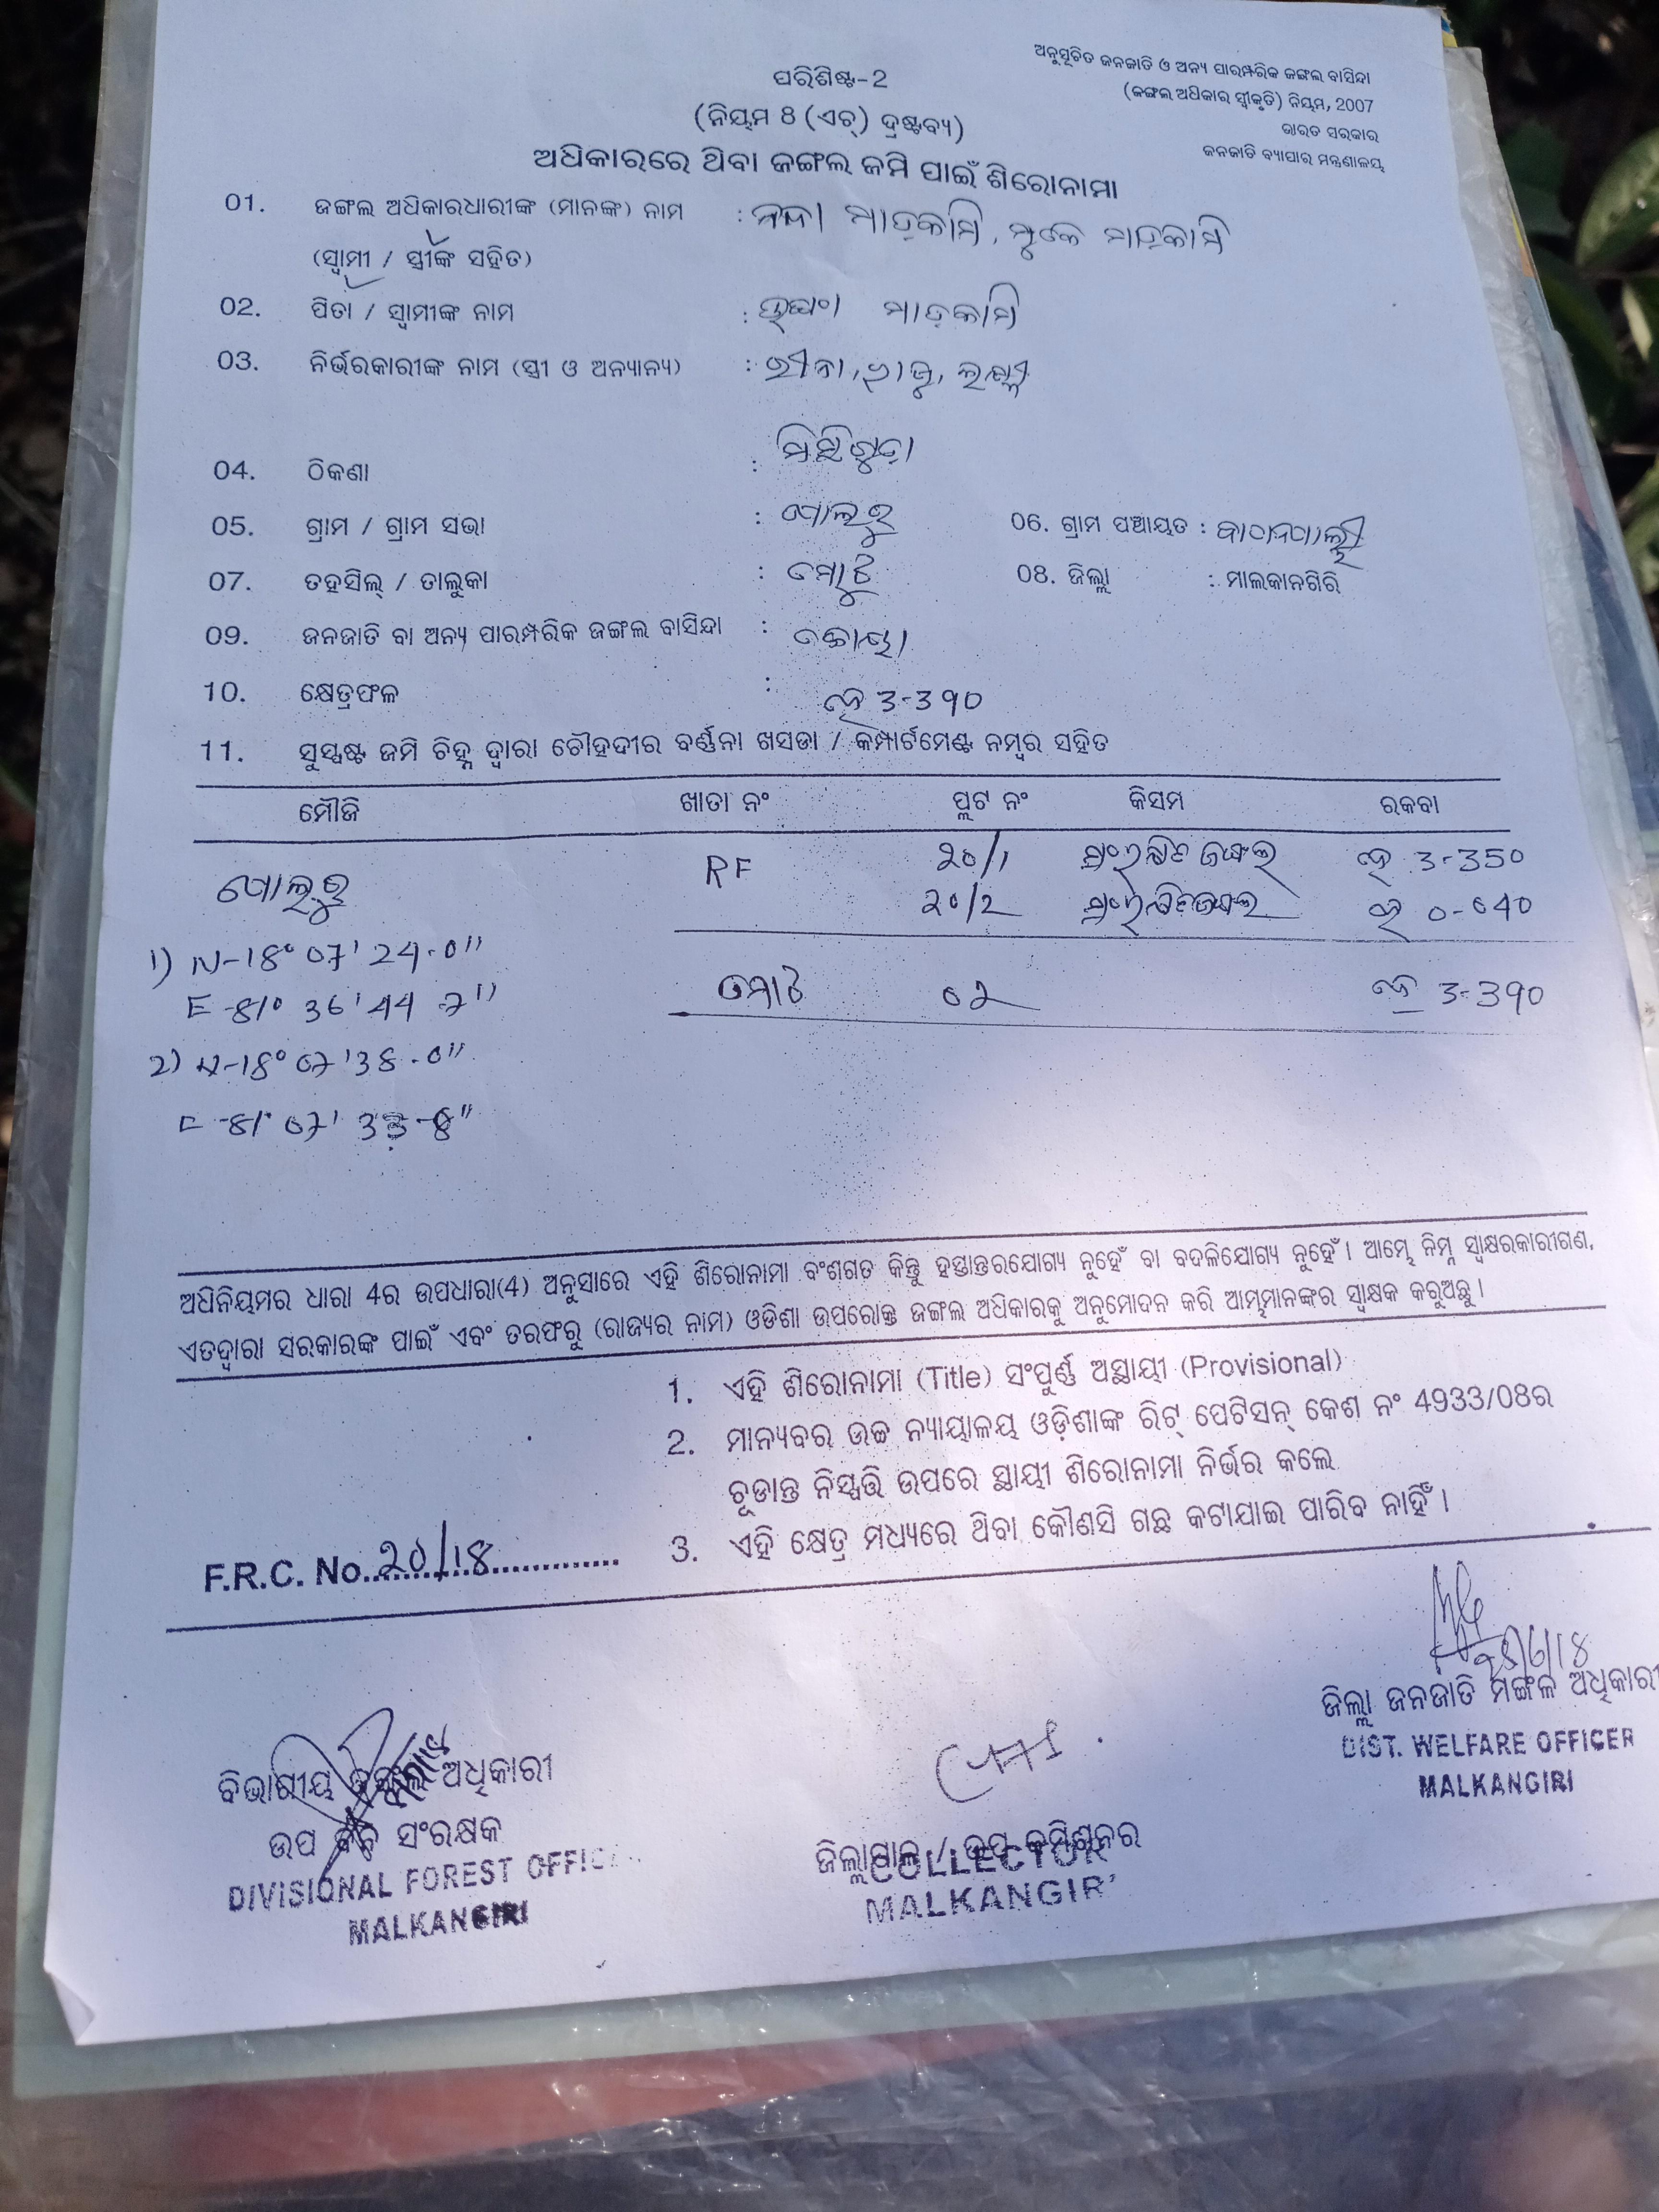 ଅନୁସୂଚିତ ଜନଜାତି ଓ ଅନ୍ୟ ପାରମ୍ପରିକ ଜଙ୍ଗଲ ବାସିନ୍ଦା
(ଜଙ୍ଗଲ ଅଧିକାର ସ୍ୱୀକୃତି) ନିୟମ, 2007
ଭାରତ ସରକାର
ଜନଜାତି ବ୍ୟାପାର ମନ୍ତ୍ରଣାଳୟ
ପରିଶିଷ୍ଟ-2
(ନିୟମ 8 (ଏଚ୍) ଦ୍ରଷ୍ଟବ୍ୟ)
ଅଧିକାରରେ ଥିବା ଜଙ୍ଗଲ ଜମି ପାଇଁ ଶିରୋନାମା
01. ଜଙ୍ଗଲ ଅଧିକାରଧାରୀଙ୍କ (ମାନଙ୍କ) ନାମ : ନନ୍ଦା ମାଡ଼କାମି, ମୁକେ ମାଡ଼କାମି
(ସ୍ୱାମୀ / ସ୍ତ୍ରୀଙ୍କ ସହିତ)
02. ପିତା / ସ୍ୱାମୀଙ୍କ ନାମ : ମାଡ଼କାମି
03. ନିର୍ଭରକାରୀଙ୍କ ନାମ (ସ୍ତ୍ରୀ ଓ ଅନ୍ୟାନ୍ୟ) :
04. ଠିକଣା :
05. ଗ୍ରାମ / ଗ୍ରାମ ସଭା : 06. ଗ୍ରାମ ପଞ୍ଚାୟତ :
07. ତହସିଲ୍ / ତାଲୁକା : ମୋଟୁ 08. ଜିଲ୍ଲା : ମାଲକାନଗିରି
09. ଜନଜାତି ବା ଅନ୍ୟ ପାରମ୍ପରିକ ଜଙ୍ଗଲ ବାସିନ୍ଦା : କୋୟା
10. କ୍ଷେତ୍ରଫଳ : ହେ 3-390
11. ସୁସ୍ପଷ୍ଟ ଜମି ଚିହ୍ନ ଦ୍ୱାରା ଚୌହଦୀର ବର୍ଣ୍ଣନା ଖସଡା / କମ୍ପାର୍ଟମେଣ୍ଟ ନମ୍ବର ସହିତ
ମୌଜି ଖାତା ନଂ ପ୍ଲଟ ନଂ କିସମ ରକବା
RF 20/1 ସଂରକ୍ଷିତ ଜଙ୍ଗଲ ହେ 3-350
20/2 ସଂରକ୍ଷିତ ଜଙ୍ଗଲ ହେ 0-040
1) N-18° 07' 24.0"
E-81° 36' 44.7"
ମୋଟ 02 ହେ 3-390
2) N-18° 07' 38.0"
E-81° 07'
ଅଧିନିୟମର ଧାରା 4ର ଉପଧାରା(4) ଅନୁସାରେ ଏହି ଶିରୋନାମା ବଂଶଗତ କିନ୍ତୁ ହସ୍ତାନ୍ତରଯୋଗ୍ୟ ନୁହେଁ ବା ବଦଳିଯୋଗ୍ୟ ନୁହେଁ । ଆମ୍ଭେ ନିମ୍ନ ସ୍ୱାକ୍ଷରକାରୀଗଣ,
ଏତଦ୍ୱାରା ସରକାରଙ୍କ ପାଇଁ ଏବଂ ତରଫରୁ (ରାଜ୍ୟର ନାମ) ଓଡିଶା ଉପରୋକ୍ତ ଜଙ୍ଗଲ ଅଧିକାରକୁ ଅନୁମୋଦନ କରି ଆମ୍ଭମାନଙ୍କର ସ୍ୱାକ୍ଷକ କରୁଅଛୁ ।
1. ଏହି ଶିରୋନାମା (Title) ସଂପୂର୍ଣ୍ଣ ଅସ୍ଥାୟୀ (Provisional)
2. ମାନ୍ୟବର ଉଚ୍ଚ ନ୍ୟାୟାଳୟ ଓଡ଼ିଶାଙ୍କ ରିଟ୍ ପେଟିସନ୍ କେଶ ନଂ 4933/08ର
ଚୂଡାନ୍ତ ନିସ୍ପତ୍ତି ଉପରେ ସ୍ଥାୟୀ ଶିରୋନାମା ନିର୍ଭର କଲେ
3. ଏହି କ୍ଷେତ୍ର ମଧ୍ୟରେ ଥିବା କୌଣସି ଗଛ କଟାଯାଇ ପାରିବ ନାହିଁ ।
F.R.C. No. 20/18
ଜିଲ୍ଲା ଜନଜାତି ମଙ୍ଗଳ ଅଧିକାରୀ
DIST. WELFARE OFFICER
MALKANGIRI
ବିଭାଗୀୟ ଜଙ୍ଗଲ ଅଧିକାରୀ
ଉପ ବନ ସଂରକ୍ଷକ
DIVISIONAL FOREST OFFIC
MALKANGIRI
ଜିଲ୍ଲାପାଳ / ଉପ କମିଶନର
COLLECTOR
MALKANGIR